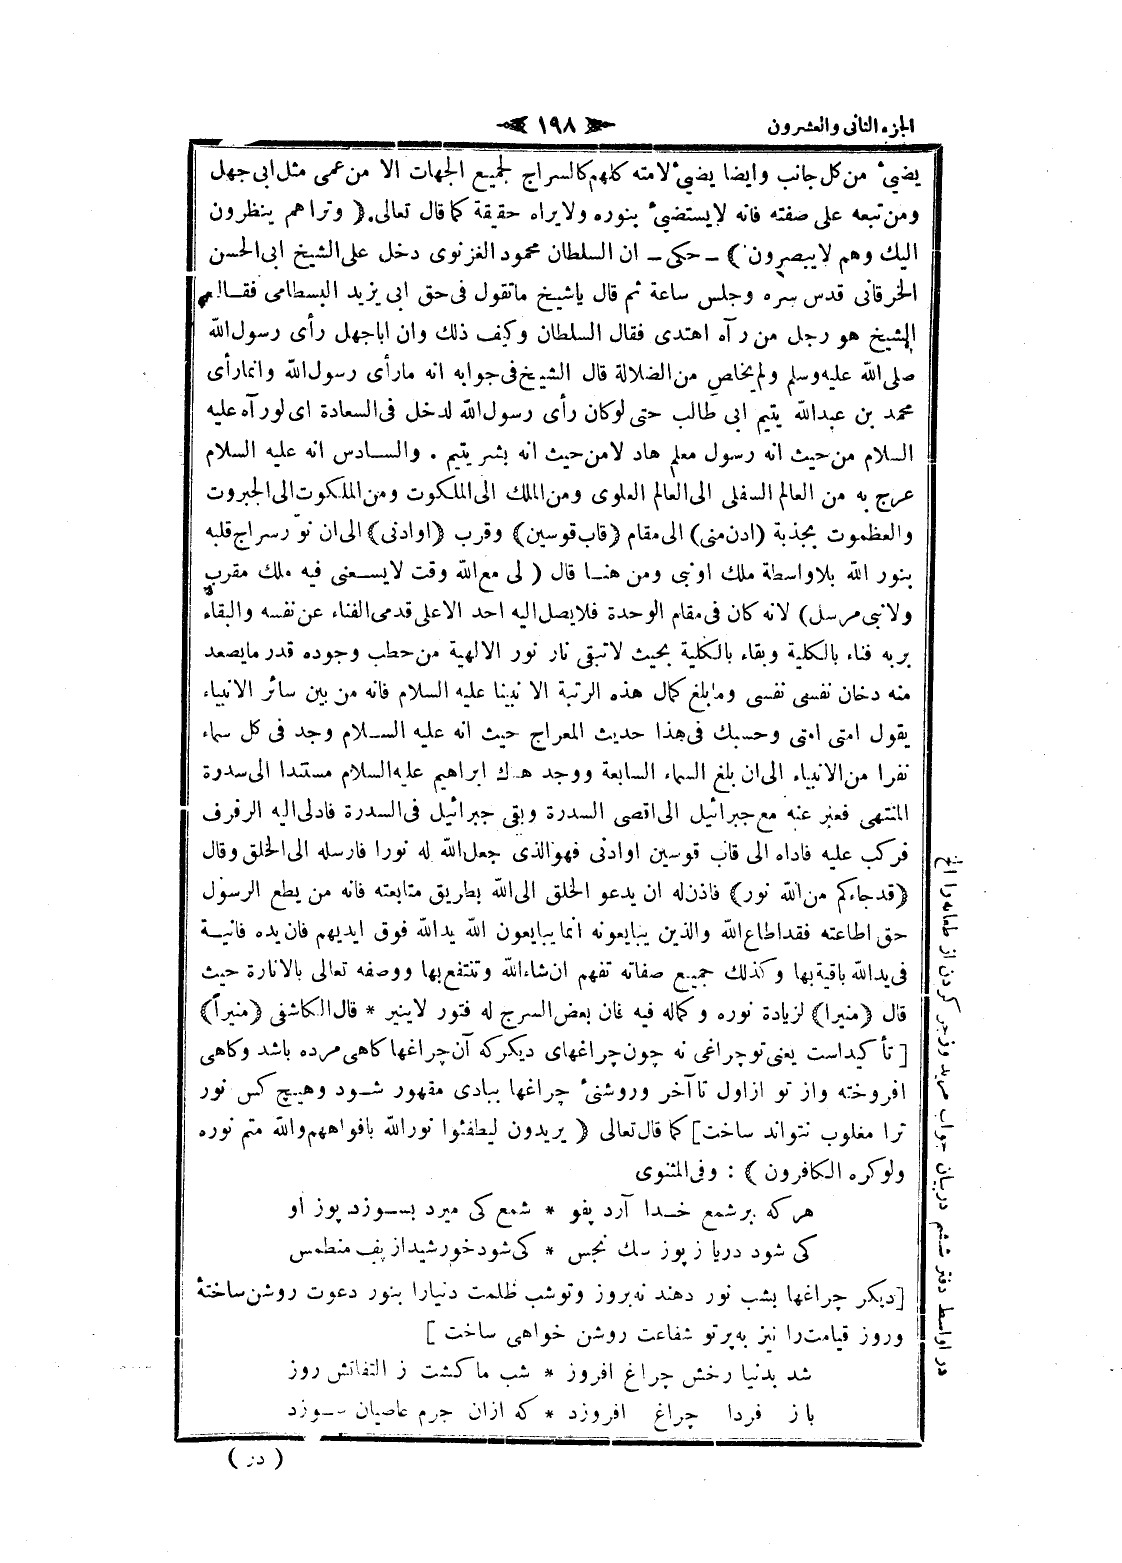 الجزء الثانى والعشرون
١٩٨
يضيئ من كل جانب وايضا يضيئ لامته كلهم كالسراج لجميع الجهات الا من عمى مثل ابى جهل
ومن تبعه على صفته فانه لايستضيئ بنوره ولايراه حقيقة كما قال تعالى ﴿ وتراهم ينظرون
اليك وهم لايبصرون ﴾ ـ حكى ـ ان السلطان محمود الغزنوى دخل على الشيخ ابى الحسن
الخرقانى قدس سره وجلس ساعة ثم قال ياشيخ ماتقول فى حق ابى يزيد البسطامى فقال
الشيخ هو رجل من رآه اهتدى فقال السلطان وكيف ذلك وان اباجهل رأى رسول الله
صلى الله عليه وسلم ولم يخلص من الضلالة قال الشيخ فى جوابه انه مارأى رسول الله وانما رأى
محمد بن عبدالله يتيم ابى طالب حتى لو كان رأى رسول الله لدخل فى السعادة اى لو رآه عليه
السلام من حيث انه رسول معلم هاد لا من حيث انه بشر يتيم . والسادس انه عليه السلام
عرج به من العالم السفلى الى العالم العلوى ومن الملك الى الملكوت ومن الملكوت الى الجبروت
والعظموت بجذبة (ادن منى) الى مقام ﴿قاب قوسين﴾ وقرب ﴿اوادنى﴾ الى ان نوّر سراج قلبه
بنور الله بلاواسطة ملك اونبى ومن هنا قال ( لى مع الله وقت لايسعنى فيه ملك مقرب
ولانبى مرسل) لانه كان فى مقام الوحدة فلايصل اليه احد الا على قدمى الفناء عن نفسه والبقاء
بربه فناء بالكلية وبقاء بالكلية بحيث لاتبقى نار نور الالهية من حطب وجوده قدر مايصعد
منه دخان نفسى نفسى ومابلغ كمال هذه الرتبة الا نبينا عليه السلام فانه من بين سائر الانبياء
يقول امتى امتى وحسبك فى هذا حديث المعراج حيث انه عليه السلام وجد فى كل سماء
نفرا من الانبياء الى ان بلغ السماء السابعة ووجد هناك ابراهيم عليه السلام مستندا الى سدرة
المنتهى فعبر عنه مع جبرائيل الى اقصى السدرة وبقى جبرائيل فى السدرة فادلى اليه الرفرف
فركب عليه فاداه الى قاب قوسين اوادنى فهو الذى جعل الله له نورا فارسله الى الخلق وقال
﴿قدجاءكم من الله نور﴾ فاذن له ان يدعو الخلق الى الله بطريق متابعته فانه من يطع الرسول
حق اطاعته فقد اطاع الله والذين يبايعونه انما يبايعون الله يدالله فوق ايديهم فان يده فانية
فى يدالله باقية بها وكذلك جميع صفاته تفهم ان شاءالله وتنتفع بها ووصفه تعالى بالانارة حيث
قال ﴿منيرا﴾ لزيادة نوره وكماله فيه فان بعض السرج له فتور لاينير * قال الكاشفى ﴿منيراً﴾
[تأ كيداست يعنى توچراغى نه چون چراغهاى ديكر كه آن چراغها كاهى مرده باشد وكاهى
افروخته واز تو ازاول تا آخر وروشنىء چراغها ببادى مقهور شود وهيچ كس نور
ترا مغلوب نتواند ساخت] كما قال تعالى ﴿ يريدون ليطفئوا نور الله بافواههم والله متم نوره
ولوكره الكافرون ﴾ : وفى المثنوى
هر كه بر شمع خدا آرد پفو * شمع كى ميرد بسوزد پوز او
كى شود دريا ز پوز سك نجس * كى شود خورشيد از پف منطمس
[ديكر چراغها بشب نور دهند نه بروز وتوشب ظلمت دنيارا بنور دعوت روشن ساختۀ
وروز قيامت را نيز به پرتو شفاعت روشن خواهى ساخت ]
شد بدنيا رخش چراغ افروز * شب ما كشت ز التفاتش روز
باز فردا چراغ افروزد * كه ازان جرم عاصيان سوزد
( در )
در اواسط دفتر ششم دربيان جواب مريد وزجر كردن از طعانه را الخ